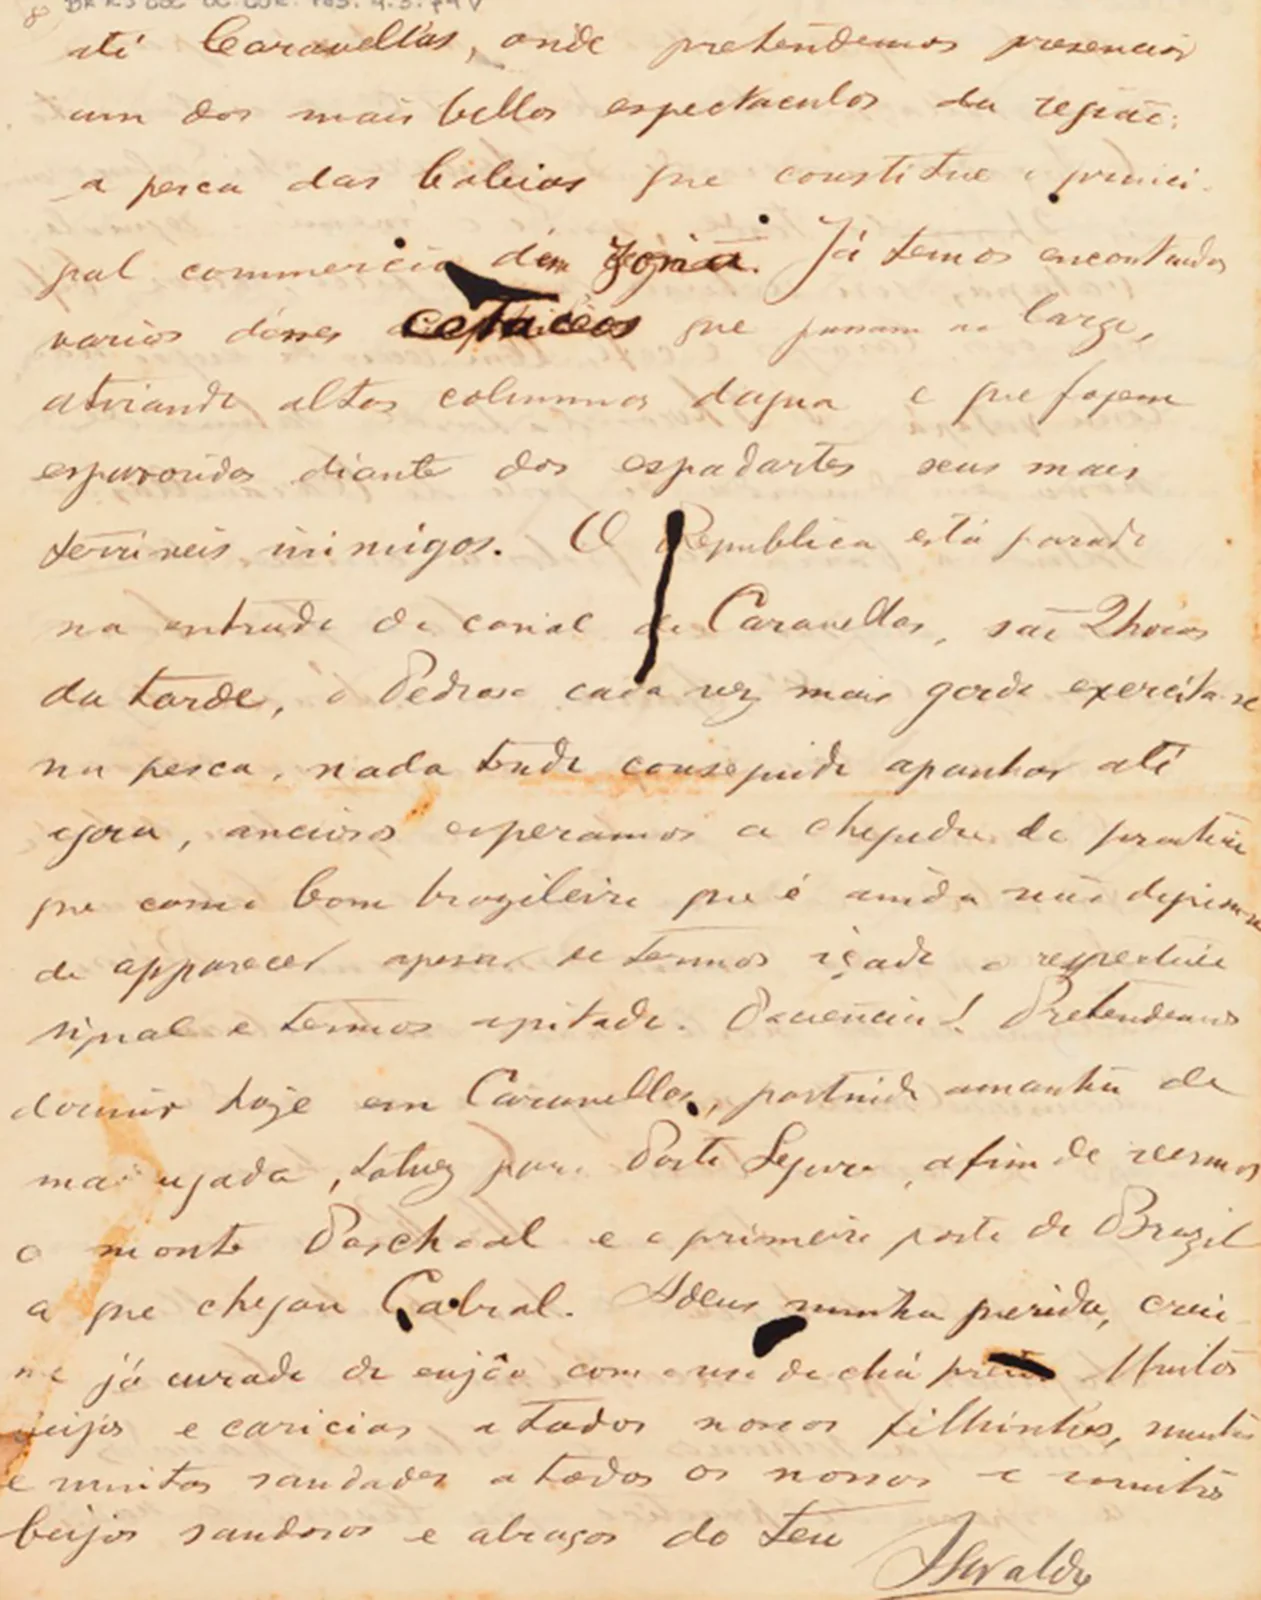 até Caravellas, onde pretendemos presenciar
um dos mais bellos espectaculos da região:
a pesca das baleias que constitue o princi-
pal commercio d'em zona. Já temos encontrado
varios desses cetaceos que passam ao largo,
atirando altas columnas dagua e que fogem
espavoridos diante dos espadartes seus mais
terriveis inimigos. O Republica está parado
na entrada do canal de Caravellas, são 2 horas
da tarde, o Pedroso cada vez mais gordo exercita-se
na pesca, nada tendo conseguido apanhar até
agora, anciosos esperamos a chegada do pratico
que como bom brazileiro que é ainda não dignou-se
de apparecer apesar de termos içado o respectivo
signal e termos apitado. Paciencia! Pretendemos
dormir hoje em Caravellas, partindo amanhã de
madrugada, talvez para Porto Seguro, afim de vermos
o monte Paschoal e o primeiro porto do Brazil
a que chegou Cabral. Adeus minha querida, creio
me já curado do enjôo com o uso do chá preto Muitos
beijos e caricias a todos nossos filhinhos, muitas
e muitas saudades a todos os nossos e muitos
beijos saudosos e abraços do teu
Oswaldo